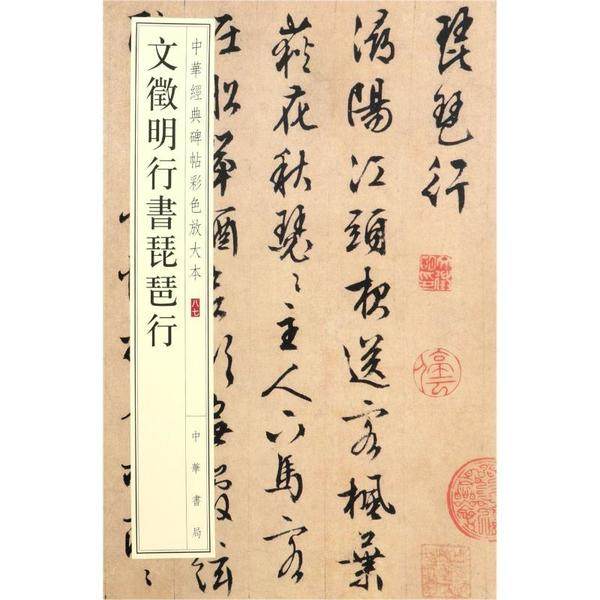 中華經典碑帖彩色放大本 八七
文徵明行書琵琶行
中華書局
琵琶行
潯陽江頭夜送客楓葉
荻花秋瑟〻主人下馬客
在船舉酒